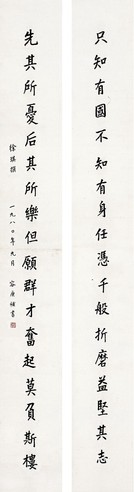 只知有國不知有身任憑千般折磨益堅其志
先其所憂后其所樂但願群才奮起莫負斯樓
徐祺撰
一九八〇年九月
書